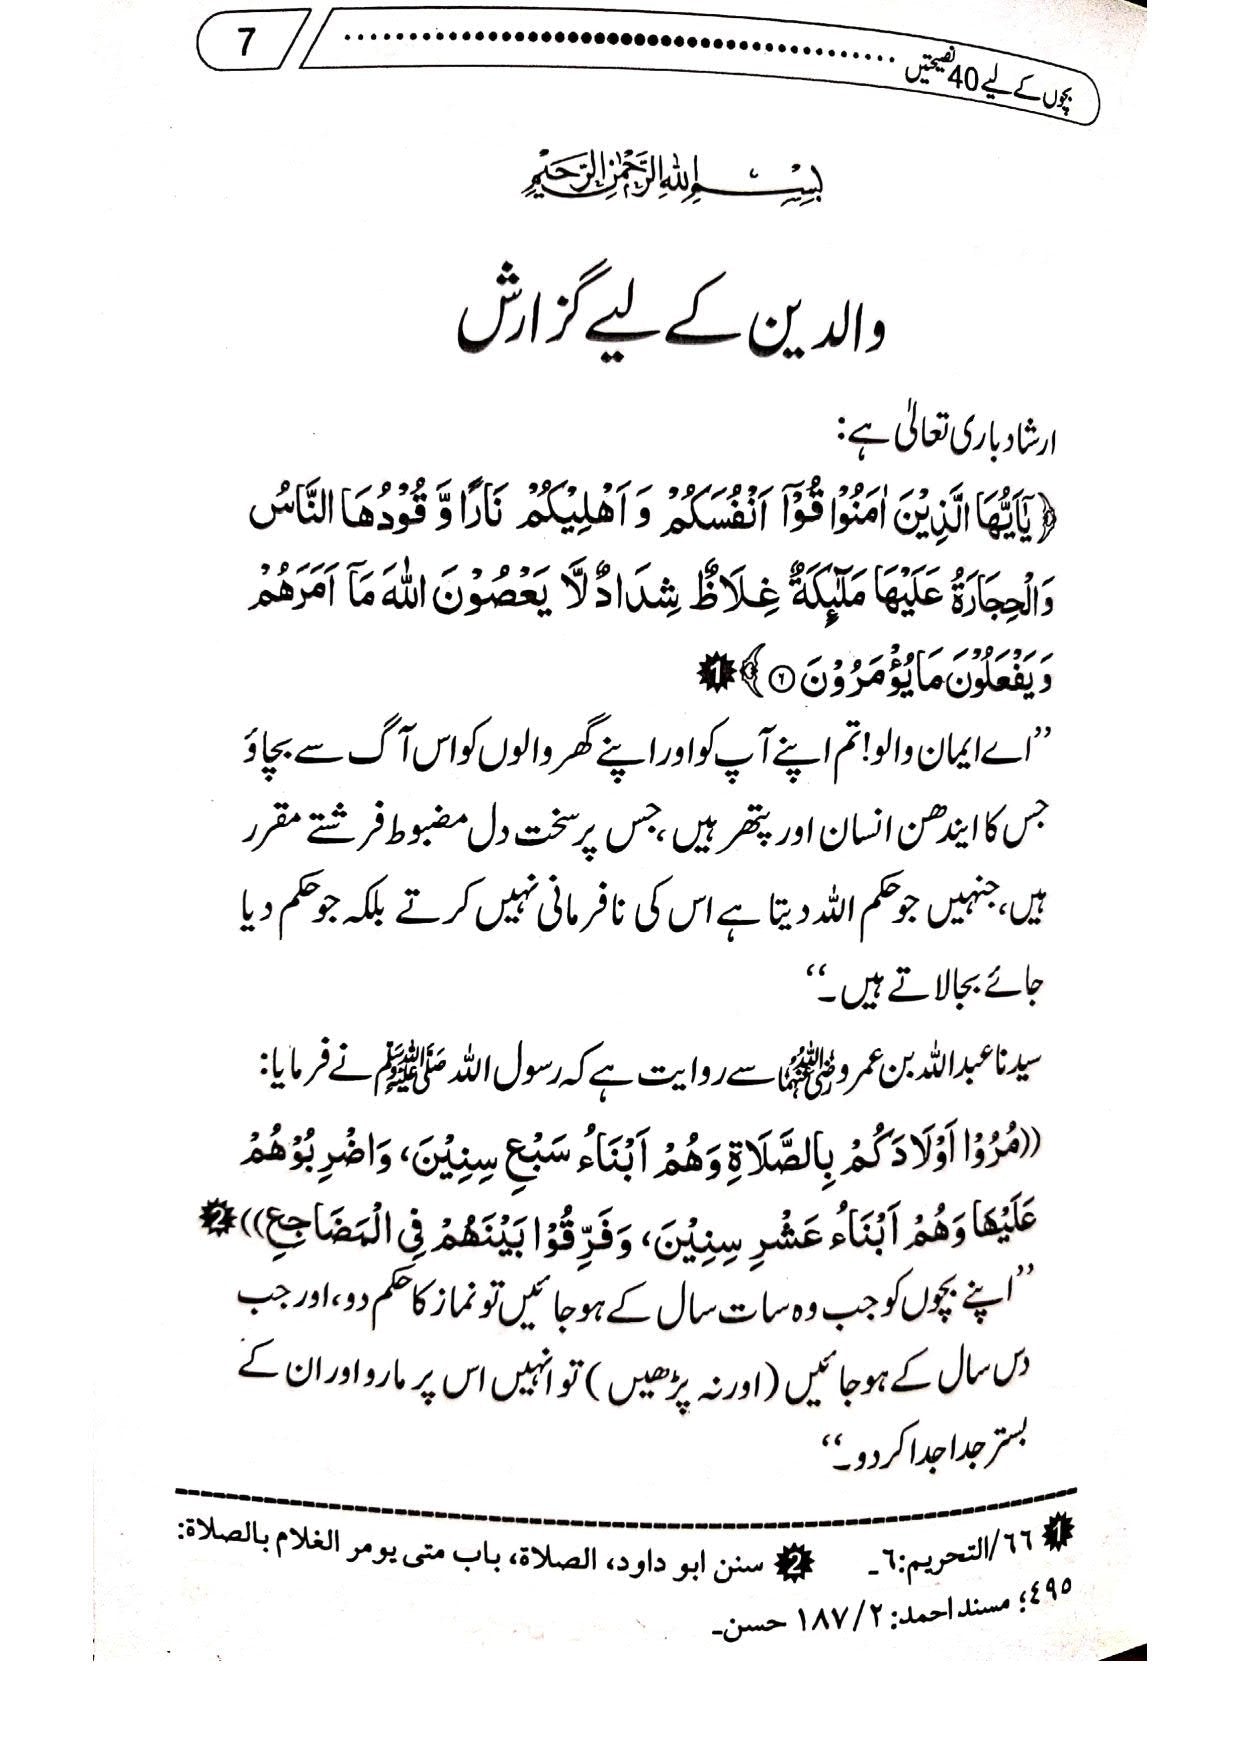 بچوں کے لیے 40 نصیحتیں
7
بِسْمِ اللهِ الرَّحْمٰنِ الرَّحِيْمِ
والدین کے لیے گزارش
ارشاد باری تعالیٰ ہے:
﴿يٰۤاَيُّهَا الَّذِيْنَ اٰمَنُوْا قُوْۤا اَنْفُسَكُمْ وَ اَهْلِيْكُمْ نَارًا وَّ قُوْدُهَا النَّاسُ
وَالْحِجَارَةُ عَلَيْهَا مَلٰٓىِٕكَةٌ غِلَاظٌ شِدَادٌ لَّا يَعْصُوْنَ اللهَ مَاۤ اَمَرَهُمْ
وَيَفْعَلُوْنَ مَا يُؤْمَرُوْنَ ۶﴾ 1
”اے ایمان والو! تم اپنے آپ کو اور اپنے گھر والوں کو اس آگ سے بچاؤ
جس کا ایندھن انسان اور پتھر ہیں، جس پر سخت دل مضبوط فرشتے مقرر
ہیں، جنہیں جو حکم اللہ دیتا ہے اس کی نافرمانی نہیں کرتے بلکہ جو حکم دیا
جائے بجالاتے ہیں۔“
سیدنا عبداللہ بن عمرو رضی اللہ عنہما سے روایت ہے کہ رسول اللہ ﷺ نے فرمایا:
((مُرُوْا أَوْلَادَكُمْ بِالصَّلَاةِ وَهُمْ أَبْنَاءُ سَبْعِ سِنِيْنَ، وَاضْرِبُوْهُمْ
عَلَيْهَا وَهُمْ أَبْنَاءُ عَشْرِ سِنِيْنَ، وَفَرِّقُوْا بَيْنَهُمْ فِي الْمَضَاجِعِ)) 2
”اپنے بچوں کو جب وہ سات سال کے ہو جائیں تو نماز کا حکم دو، اور جب
دس سال کے ہو جائیں (اور نہ پڑھیں) تو انہیں اس پر مارو اور ان کے
بستر جدا جدا کر دو۔“
1 ٦٦/التحریم:٦۔ 2 سنن ابو داود، الصلاة، باب متی یومر الغلام بالصلاة:
٤٩٥؛ مسند احمد: ٢/١٨٧ حسن۔